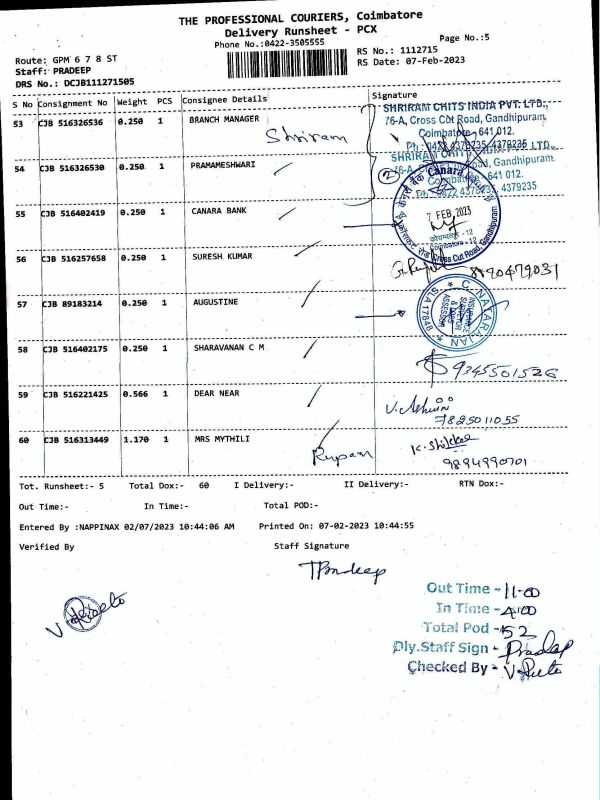 THE PROFESSIONAL COURIERS, Coimbatore
Delivery Runsheet - PCX
Phone No.:0422-3505555
Page No.:5
Route: GPM 6 7 8 ST
RS No.: 1112715
Staff: PRADEEP
RS Date: 07-Feb-2023
DRS No.: DCJB111271505
S No Consignment No Weight PCS Consignee Details Signature
53 CJB 516326536 0.250 1 BRANCH MANAGER
Shriram
SHRIRAM CHITS INDIA PVT. LTD.,
76-A, Cross Cut Road, Gandhipuram,
Coimbatore - 641 012.
Ph : 0422 4378235, 4379235
54 CJB 516326530 0.250 1 PRAMAMESHWARI
SHRIRAM CHITS INDIA PVT. LTD.,
76-A, Cross Cut Road, Gandhipuram,
Coimbatore - 641 012.
Ph : 0422 4378235, 4379235
2
55 CJB 516402419 0.250 1 CANARA BANK
Canara
7 FEB 2023
Coimbatore - 12
Cross Cut Road, Gandhipuram
56 CJB 516257658 0.250 1 SURESH KUMAR
8890479031
57 CJB 89183214 0.250 1 AUGUSTINE
C. NATARAJAN
INSURANCE
SURVEYOR
& LOSS
ASSESSOR
SLA 17848
58 CJB 516402175 0.250 1 SHARAVANAN C M
9345501526
59 CJB 516221425 0.566 1 DEAR NEAR
V. Ashwini
7825011055
60 CJB 516313449 1.170 1 MRS MYTHILI
Rupam
9894990701
Tot. Runsheet:- 5 Total Dox:- 60 I Delivery:- II Delivery:- RTN Dox:-
Out Time:- In Time:- Total POD:-
Entered By :NAPPINAX 02/07/2023 10:44:06 AM Printed On: 07-02-2023 10:44:55
Verified By Staff Signature
TPradeep
Out Time - 11-00
In Time - 4.00
Total Pod - 52
Dly.Staff Sign - Pradeep
Checked By -